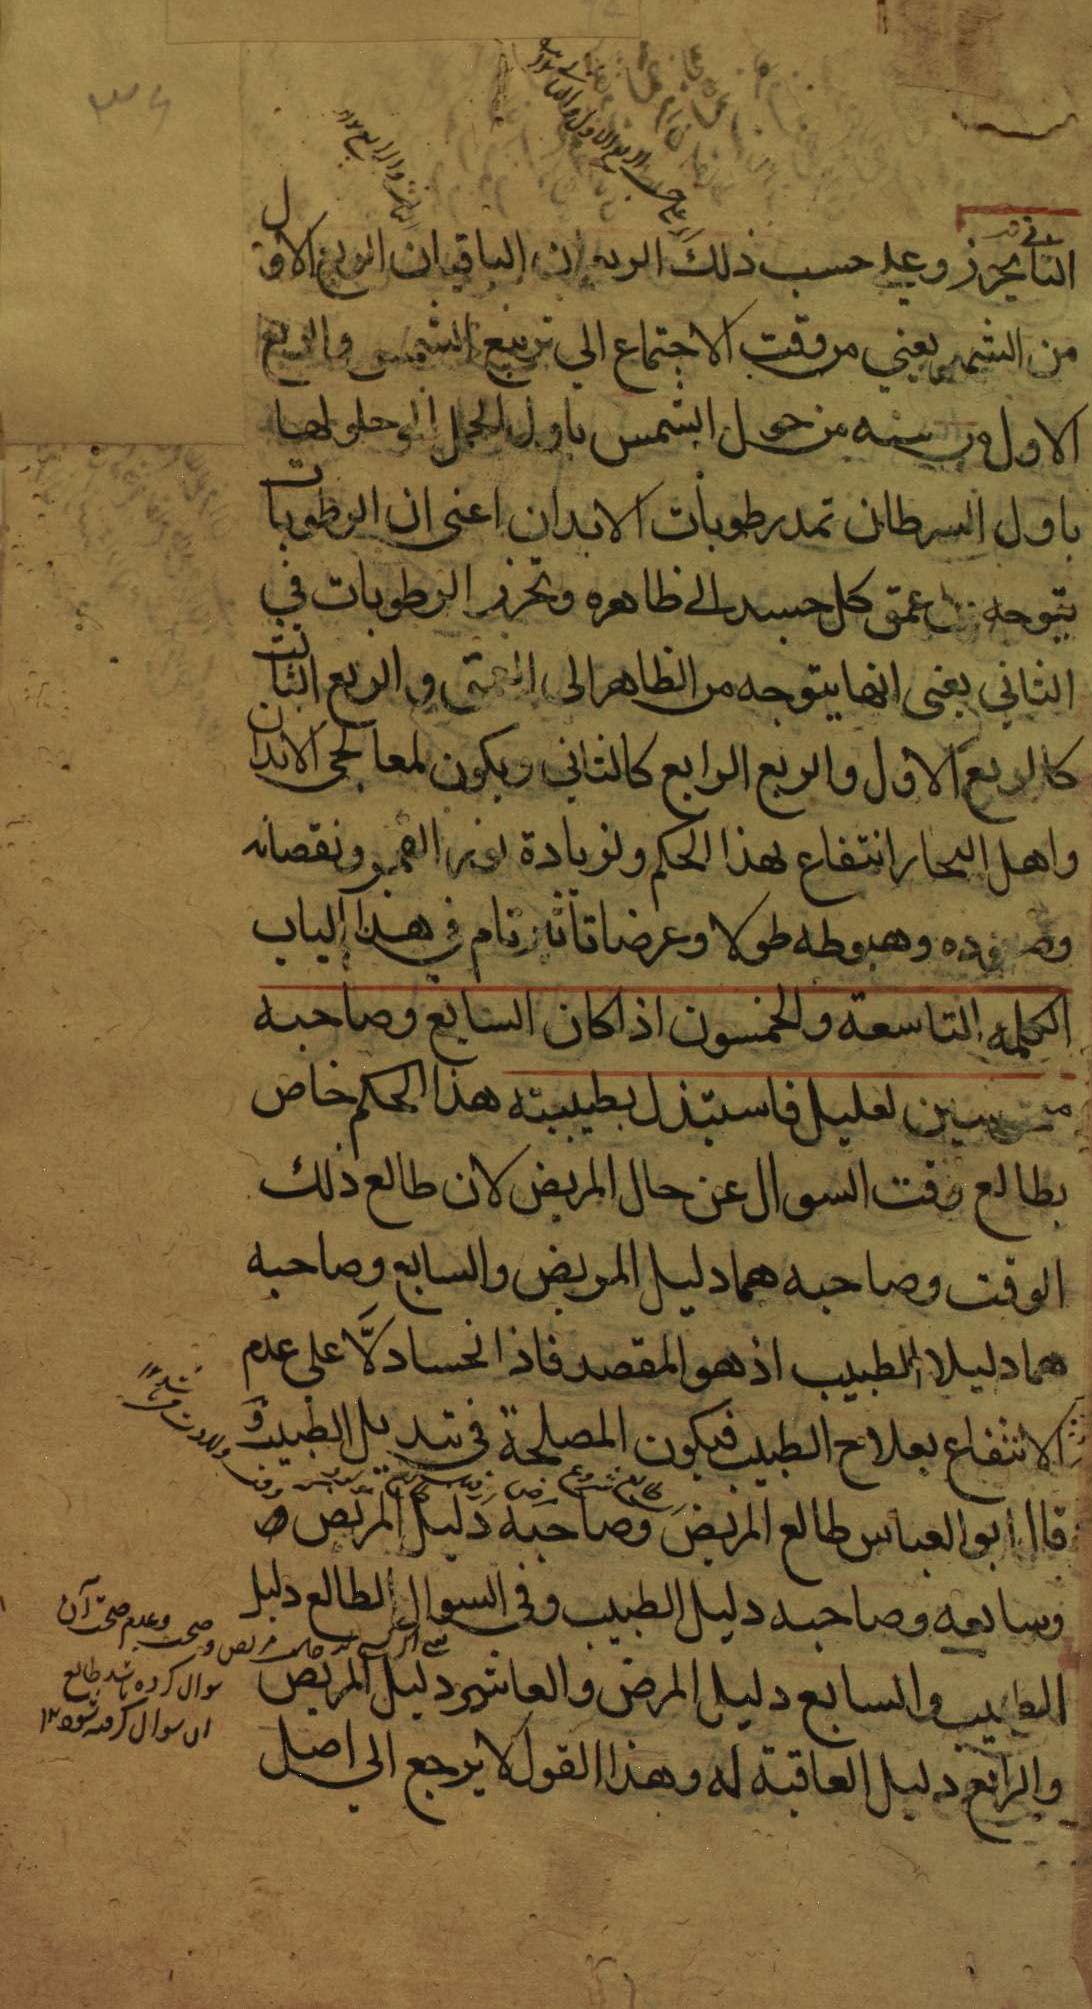 الثاني تجزر وعلى حسب ذلك الربعان الباقيان الربع الاول
من الشمس يعني من وقت الاجتماع الى تربيع الشمس والربع
الاول من سنه من حول الشمس باول الحمل الى حلولها
باول السرطان تمد رطوبات الابدان اعنى ان الرطوبات
يتوجه من عمق كل جسد الى ظاهره وتجزر الرطوبات في
الثاني يعنى انها يتوجه من الظاهر الى العمق والربع الثالث
كالربع الاول والربع الرابع كالثاني ويكون لمعالجى الابدان
واهل البحار انتفاع بهذا الحكم ولزيادة نور القمر ونقصانه
وصعوده وهبوطه طولا وعرضا تاثير تام في هذا الباب
الكلمة التاسعة والخمسون اذا كان السابع وصاحبه
منحوسين لعليل فاستبذل بطبيبته هذا الحكم خاص
بطالع وقت السوال عن حال المريض لان طالع ذلك
الوقت وصاحبه هما دليل المريض والسابع وصاحبه
هما دليلا الطبيب اذ هو المقصد فاذا نحسا دلّا على عدم
الانتفاع بعلاج الطبيب فيكون المصلحة في تبديل الطبيب و
قال ابو العباس طالع المريض وصاحبه دليل المريض و
وسابعه وصاحبه دليل الطبيب وفي السوال الطالع دليل
الطبيب والسابع دليل المرض والعاشر دليل المريض
والرابع دليل العاقبة له وهذا القول لا يرجع الى اصل
مريض و صحت وعدم صحت آن
سوال كرده باشد طالع
ان سوال كرفته شود ١٢